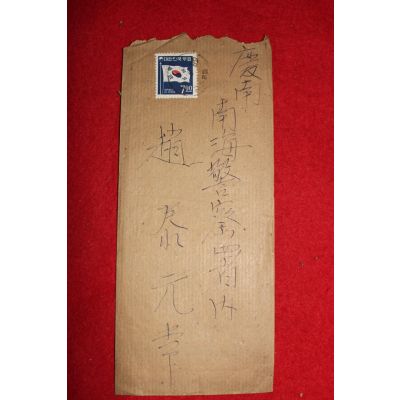 慶南
南海警察署内
趙泰元
대한민국우표
7.00